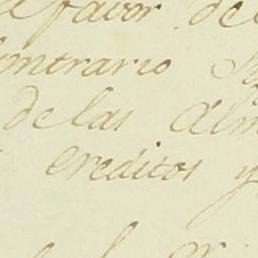 a favor de
contrario
de las Alm
creditos y